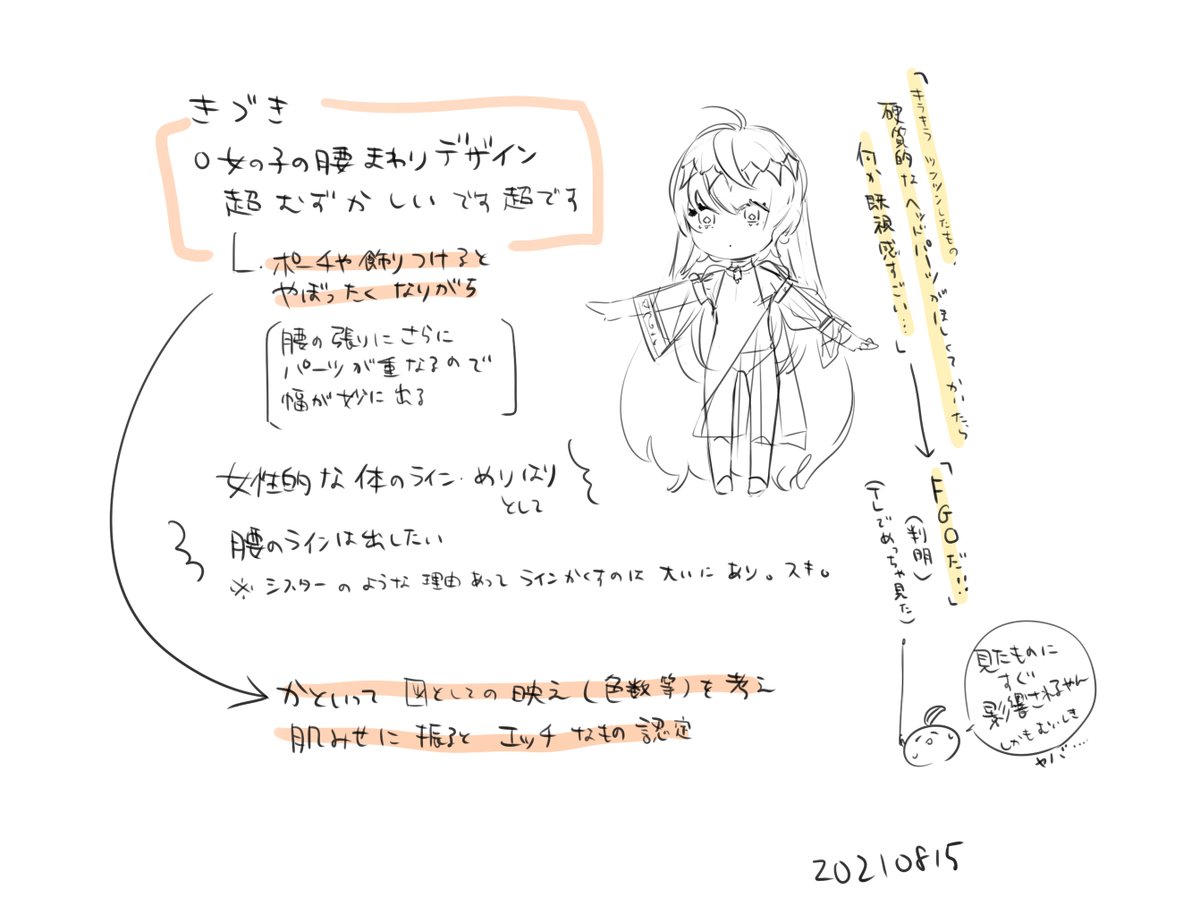 きづき
○女の子の腰まわりデザイン
超むずかしいです超です
ポーチや飾りつけると
やぼったくなりがち
腰の張りにさらに
パーツが重なるので
幅が妙に出る
女性的な体のライン・めりはり
として
腰のラインは出したい
※シスターのような理由あってラインかくすのは大いにあり。スキ。
かといって図としての映え(色数等)を考え
肌みせに振るとエッチなもの認定
「キラキラツンツンしたもの、
硬質的なヘッドパーツがほしくてかいたら
何か既視感すごい…」
「FGOだ!!」
(判明)
(テレでめっちゃ見た)
見たものに
すぐ
影響されるやん
しかもむいしき
ヤバ....
20210815